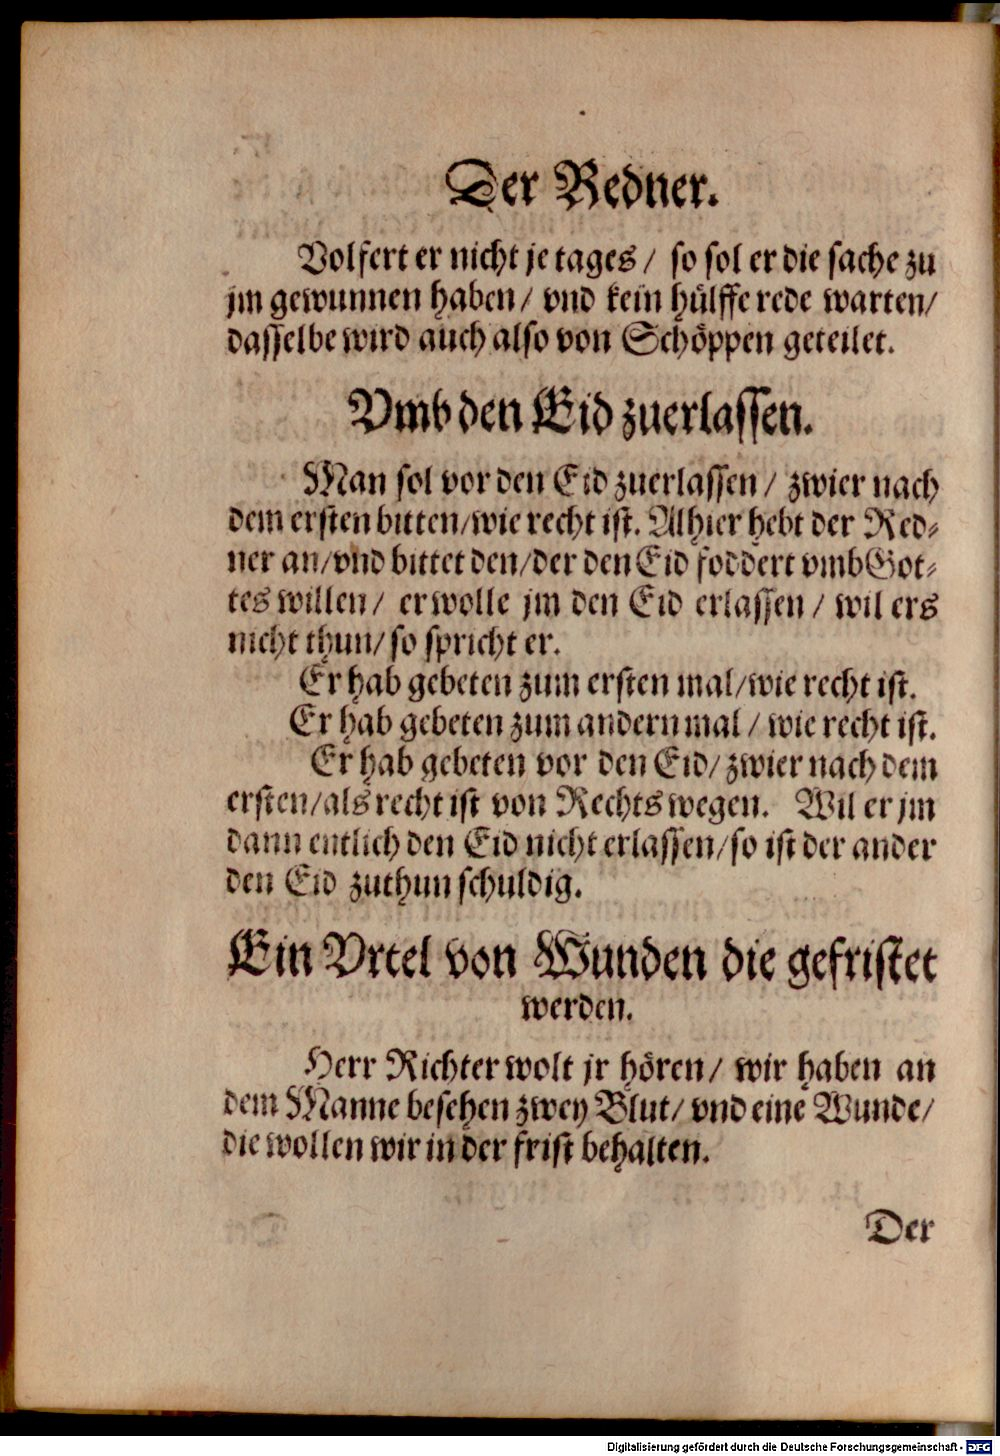 Der Redner.
Volfert er nicht je tages / so sol er die sache zu
jm gewunnen haben / vnd kein hülffe rede warten /
dasselbe wird auch also von Schöppen geteilet.
Vmb den Eid zuerlassen.
Man sol vor den Eid zuerlassen / zwier nach
dem ersten bitten / wie recht ist. Alhier hebt der Red-
ner an / vnd bittet den / der den Eid foddert vmb Got-
tes willen / er wolle jm den Eid erlassen / wil ers
nicht thun / so spricht er.
Er hab gebeten zum ersten mal / wie recht ist.
Er hab gebeten zum andern mal / wie recht ist.
Er hab gebeten vor den Eid / zwier nach dem
ersten / als recht ist von Rechts wegen. Wil er jm
dann entlich den Eid nicht erlassen / so ist der ander
den Eid zuthun schuldig.
Ein Vrtel von Wunden die gefristet
werden.
Herr Richter wolt jr hören / wir haben an
dem Manne besehen zwey Blut / vnd eine Wunde /
die wollen wir in der frist behalten.
Der
Digitalisierung gefördert durch die Deutsche Forschungsgemeinschaft - DFG